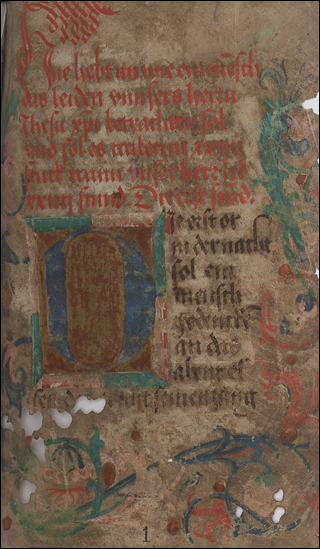 Hie hebt an wie ein mēsch
das leiden vnnsers herrn
Jhesu xp̄i betrachten sol
vnd sol es teilen in xxiiij
wann vnser herr
xxiiij stund. Die erst stūd.
Die erst or
in der nacht
sol ein
mensch
gedencken
an das
abent es
sen
1